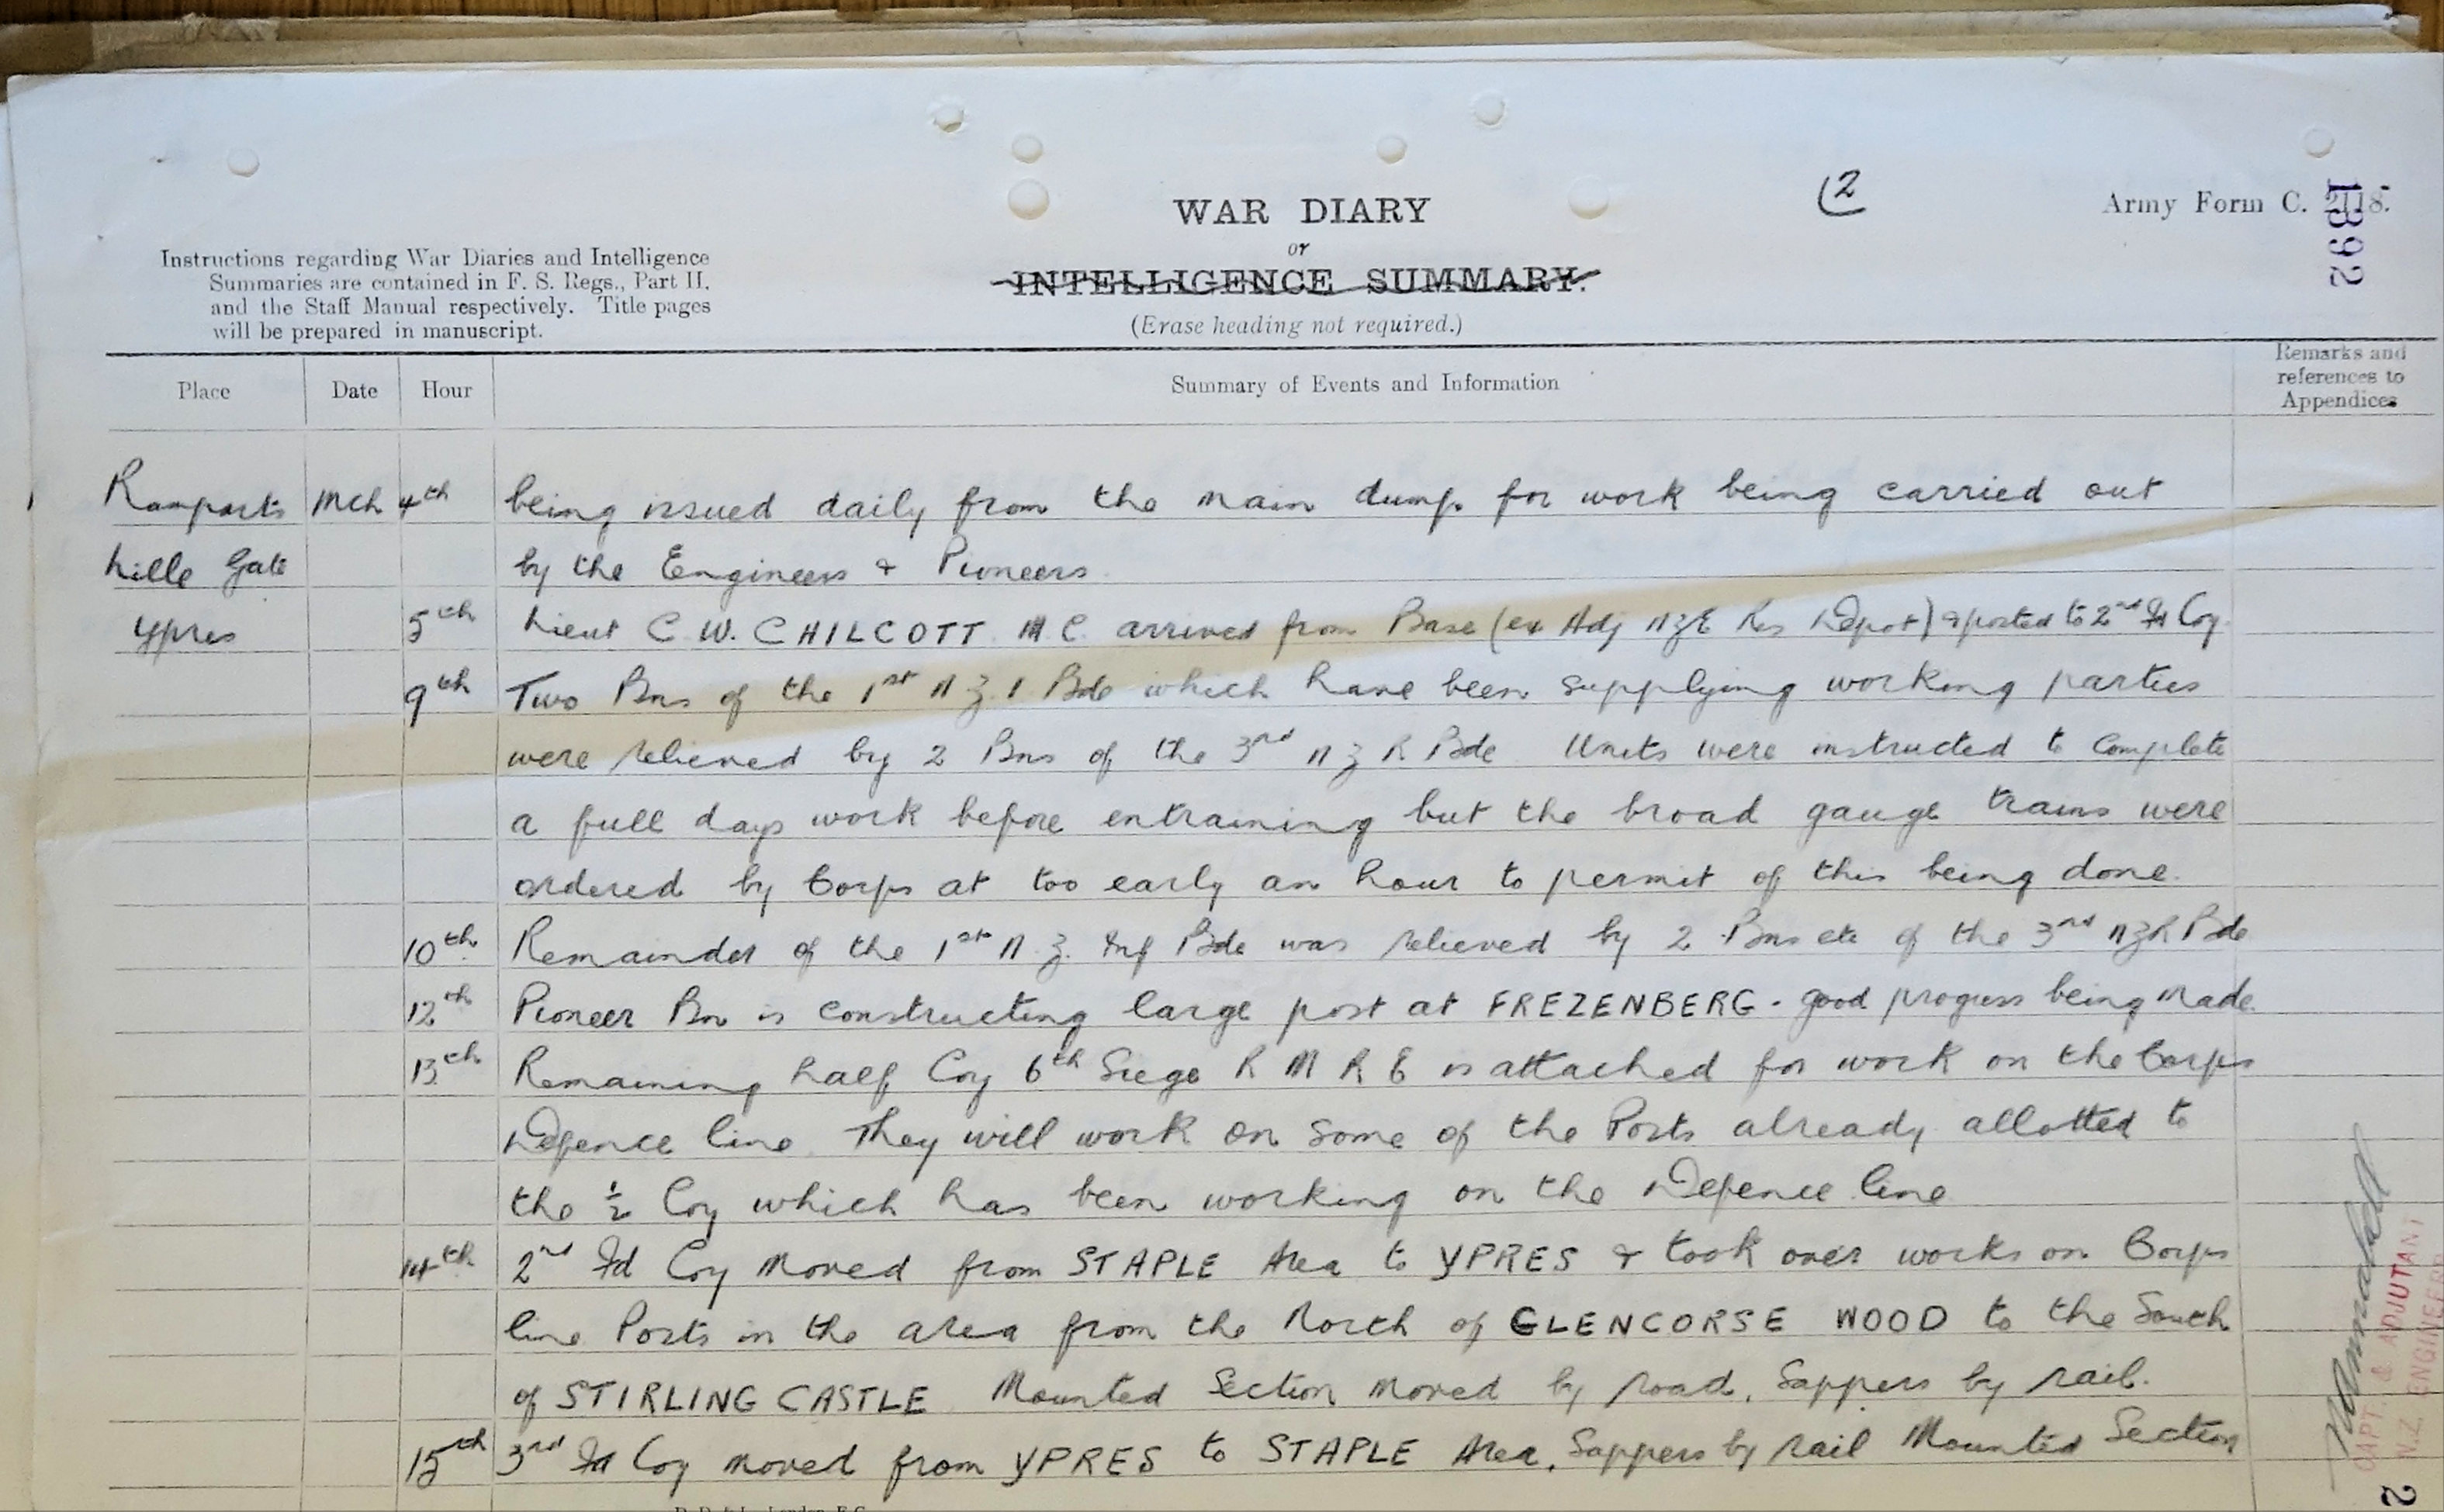 WAR DIARY
or
INTELLIGENCE SUMMARY.
(Erase heading not required.)
(2
Army Form C. 2118.
1392
Instructions regarding War Diaries and Intelligence
Summaries are contained in F. S. Regs., Part II.
and the Staff Manual respectively. Title pages
will be prepared in manuscript.
Place Date Hour Summary of Events and Information Remarks and references to Appendices
Ramparts Mch 4th being issued daily from the main dump for work being carried out
Lille Gate by the Engineers & Pioneers
Ypres 5th Lieut C. W. CHILCOTT M.C. arrived from Base (ex Adj NZE Res Depot) & posted to 2nd Fd Coy
9th Two Bns of the 1st N Z I Bde which have been supplying working parties
were relieved by 2 Bns of the 3rd N Z R Bde Units were instructed to complete
a full days work before entraining but the broad gauge trains were
ordered by Corps at too early an hour to permit of this being done.
10th Remainder of the 1st N.Z. Inf Bde was relieved by 2 Bns etc of the 3rd NZR Bde
12th Pioneer Bn is constructing large post at FREZENBERG - good progress being made.
13th Remaining half Coy 6th Siege R M R E is attached for work on the Corps
Defence line. They will work on some of the Posts already allotted to
the ½ Coy which has been working on the Defence line
14th 2nd Fd Coy moved from STAPLE Area to YPRES & took over works on Corps
line Posts in the area from the North of GLENCORSE WOOD to the South
of STIRLING CASTLE Mounted Section moved by road, Sappers by rail.
15th 3rd Fd Coy moved from YPRES to STAPLE Area, Sappers by rail Mounted Section
CAPT. & ADJUTANT
N.Z. ENGINEERS
2